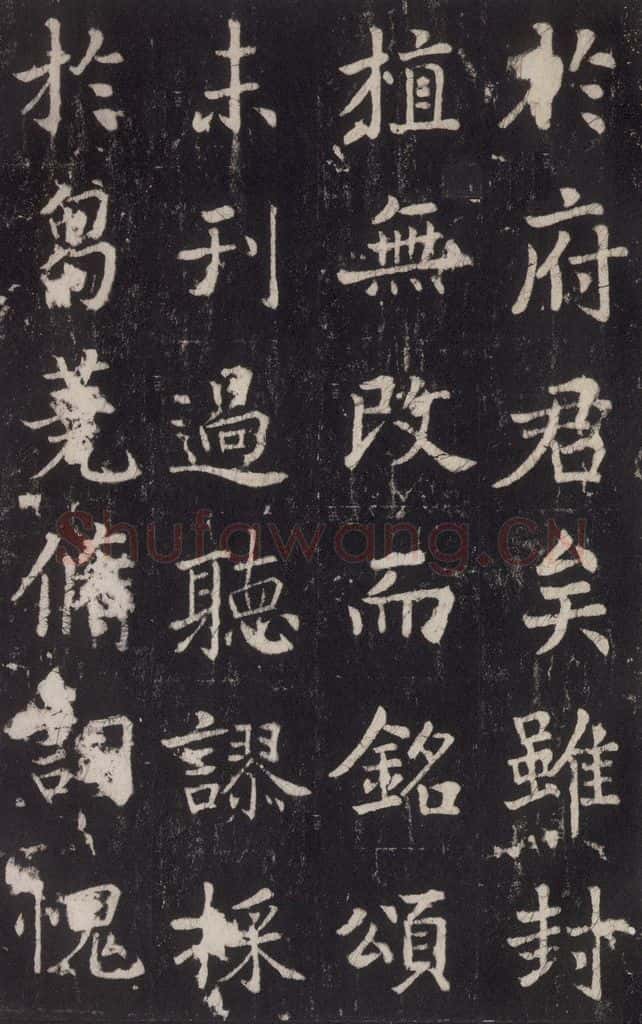 於府君矣雖封
植無改而銘頌
未刊過聽謬採
於芻蕘脩詞愧
Shufawang.CN